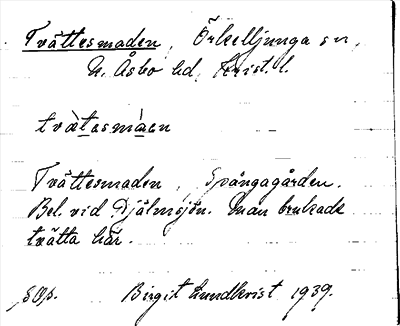 Tvättesmaden, Örkelljunga sn,
N. Åsbo hd, Krist. l.
tvàtesmàen
Tvättesmaden, Spångagården.
Bel. vid Djälmsjön. Man brukade
tvätta här.
Birgit Lundkvist 1939.